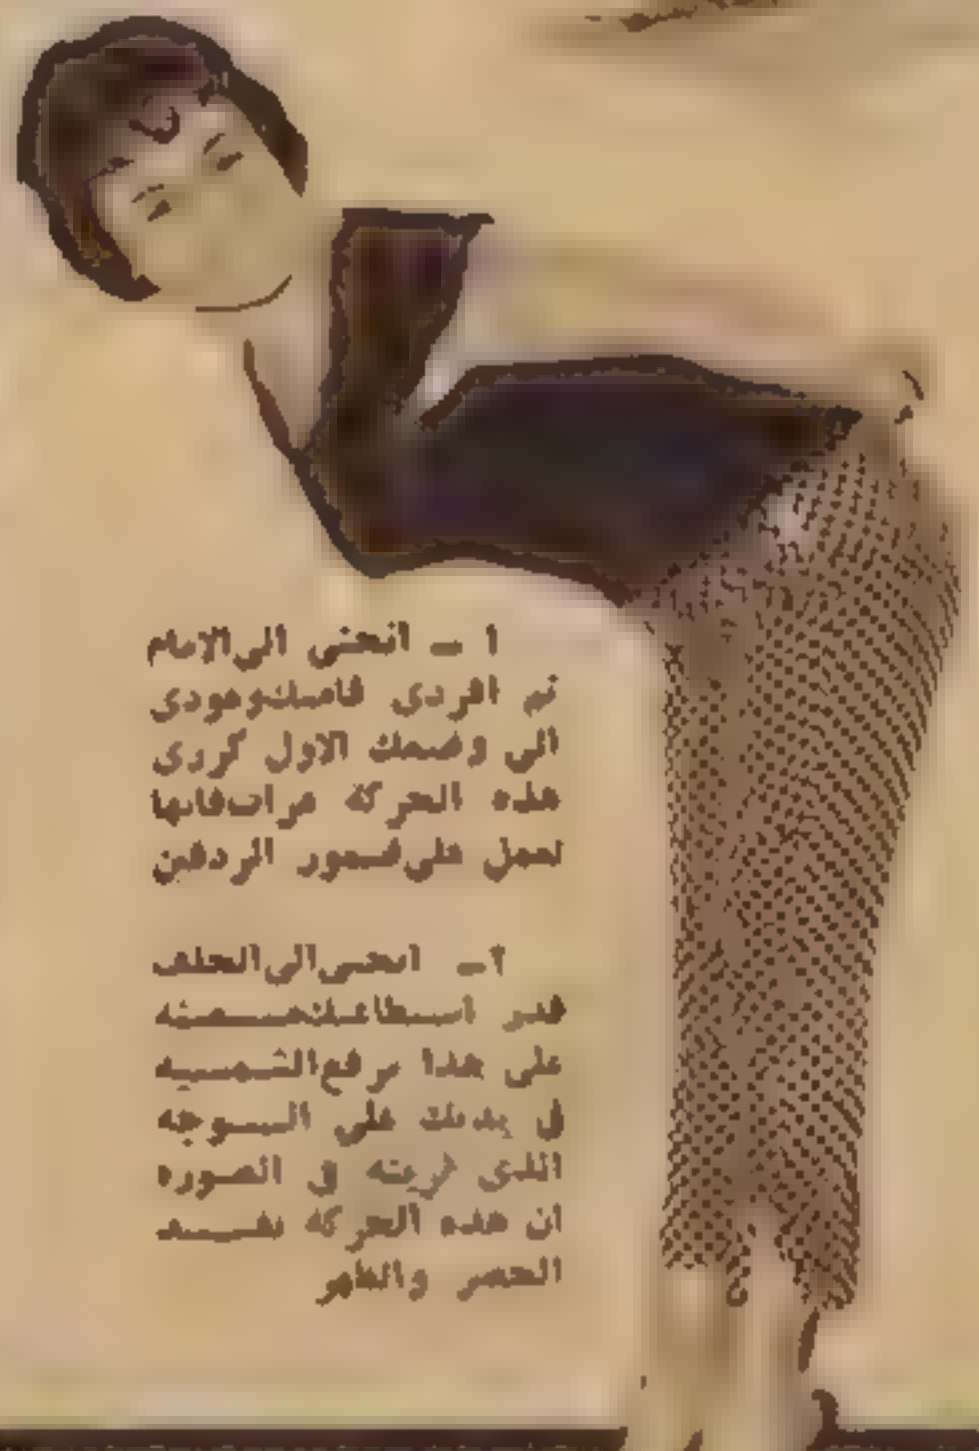 ١ ــ انحنى الى الامام
ثم افردى قامتك وعودى
الى وضعك الاول كررى
هذه الحركة مرات فانها
تعمل على ضمور الردفين
٢ــ انحنى الى الخلف
قدر استطاعتك
على هذا مع الشمسية
فى يديك على الــوجه
الذى ترينه فى الصورة
ان هذه الحركة تفيــد
الخصر والظهر